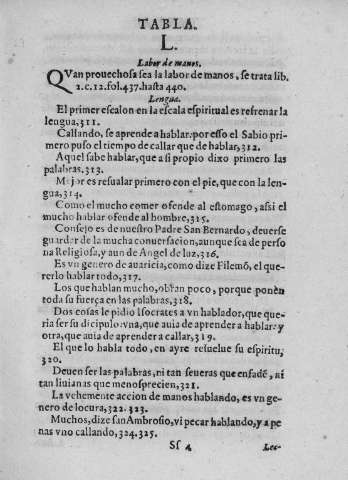 TABLA.
L.
Labor de manos.
QVan prouechosa sea la labor de manos, se trata lib.
2.c.12.fol.437.hasta 440.
Lengua.
El primer escalon en la escala espiritual es refrenar la
lengua, 311.
Callando, se aprende a hablar: por esso el Sabio pri-
mero puso el tiempo de callar que de hablar, 312.
Aquel sabe hablar, que a si propio dixo primero las
palabras. 313.
Mejor es resualar primero con el pie, que con la len-
gua, 314.
Como el mucho comer ofende al estomago, assi el
mucho hablar ofende al hombre, 315.
Consejo es de nuestro Padre San Bernardo, deuerse
guardar de la mucha conuersacion, aunque sea de perso
na Religiosa, y aun de Angel de luz, 316.
Es vn genero de auaricia, como dize Filemõ, el que-
rerlo hablar todo, 317.
Los que hablan mucho, obran poco, porque ponẽn
toda su fuerça en las palabras, 318.
Dos cosas le pidio Isocrates a vn hablador, que que-
ria ser su dicipulo: vna, que auia de aprender a hablar: y
otra, que auia de aprender a callar, 319.
El que lo habla todo, en ayre resuelue su espiritu,
320.
Deuen ser las palabras, ni tan seueras que enfadẽ, ni
tan liuianas que menosprecien, 321.
La vehemente accion de manos hablando, es vn ge-
nero de locura, 322. 323.
Muchos, dize san Ambrosio, vi pecar hablando, y a pe
nas vno callando, 324. 325.
Sf 4 Lec-